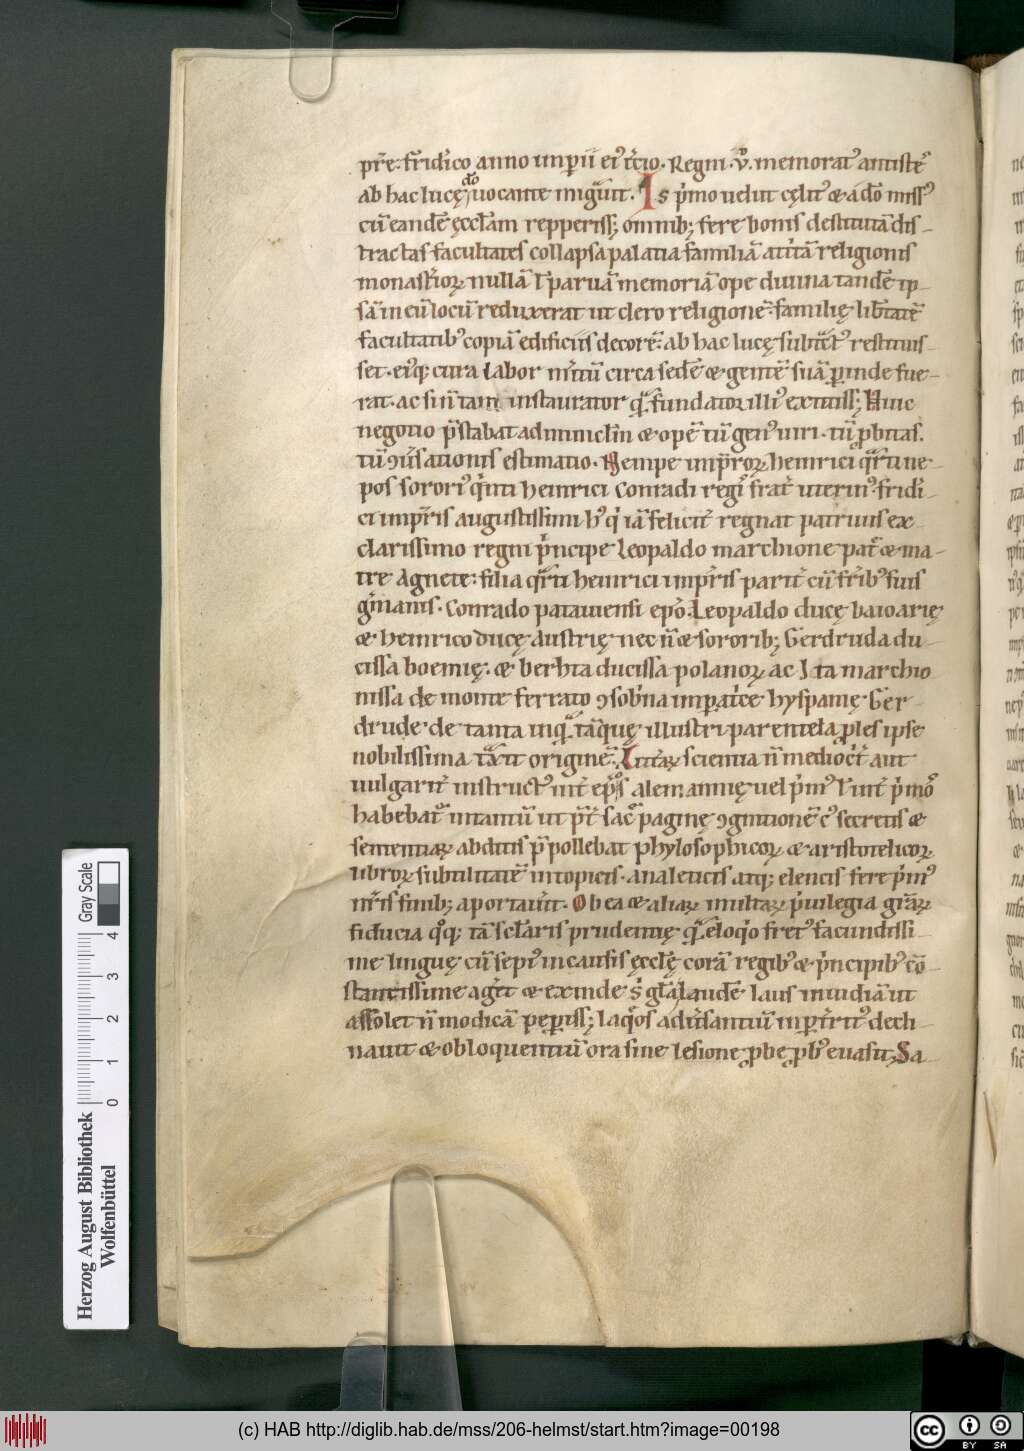 pr̄e. fridico anno imperii ei᷒ t̄cio. Regni. v̊. memorat᷒ antiste᷒
ab hac lucę dn̄o uocante migͣuit. Is p̍mo uelut cęlit᷒ & a dō miss᷒
cū eandē ęcctām repperiss; omnib; fere bonis destitutā dis-
tractas facultates collapsa palatia familiā attitā religionis
monast̍ioꝝ nullā ł paruā memoriā ope diuina tandē ip-
sā in eū locū reduxerat ut clero religionē. familię lib̄tatē
facultatib᷒ copiā edificiis decorē. ab hac lucę subt̄ct᷒ restituis-
set. ei᷒q; cura labor m̍itū circa sedē & gentē suā ꝑinde fue-
rat. ac si n̄ tam instaurator qͣ̄ fundator illi᷒ extitiss; Huic
negotio p̄stabat adminiclm̄ & opē tū gen᷒ uiri. tū ꝓbitas.
tū ꝯuˀsationis estimatio. Nempe imp̄roꝝ heinrici qͣrti ne-
pos sorori᷒ q̍nti heinrici Conradi regi᷒ frat̄ uterin᷒. fridi-
ci imp̄ris augustissimi h᷒ q̍ iā felicit̄ regnat patruus ex
clarissimo regni p̍ncipe leopaldo marchione patͤ & ma-
tre Agnete. filia qͣrti heinrici imp̄ris parit̄ cū fr̄ib᷒ suis
g̍manis. Conrado patauiensi ep̄o. Leopaldo ducę baioarię
& heinrico ducę Austrię nec n̄ & sororib; Gerdruda du-
cissa boemię. & berhta ducissa polanoꝝ ac Ita marchio
nissa de monte ferrato ꝯsob̍na imꝑat̍ce hyspanię Ger-
drude. de tanta inqͣ̄ tāq̍ę illustri parentela ꝓles ipse
nobilissima tͣx̄it originē. Litt̄aꝝ scientia n̄ mediocͥt̄ aut
uulgarit̄ instruct᷒ int̄ ep̄o̊s alemannię uel p̍m᷒ ł int̄ p̍mo᷒
habebat᷒. in tantū ut p̄t̄ sac̊ paginę ꝯgnitionē c᷒ secretis &
sententiaꝝ abditis p̄pollebat phylosophicoꝝ & aristotelicoꝝ
libroꝝ subtilitatē in topicis. analeticis atq; elencis fere p̍m᷒
nr̄is finib; aportauˀit. Ob ea & aliaꝝ multaꝝ p̍uilegia gr̄aꝝ
fiducia q̊q; tā sctāris prudentię qͣ̄ eloq̍o fret᷒ facundissi-
me linguę cū sepi᷒ in causis ęcctę̄ corā regib᷒ & p̍ncipib᷒ cō-
stantissime ag̍et & exinde s̄ gtā laudē laus inuidiā ut
assolet n̄ modicā peꝑiss; laq̊s aduˀsantiū inꝑt̄rit᷒ decli-
nauit & obloquentiū ora sine lesione ꝓbe ꝓb᷒ euasit; Sa
Herzog August Bibliothek
Wolfenbüttel
0 1 2 3 4
Gray Scale
(c) HAB http://diglib.hab.de/mss/206-helmst/start.htm?image=00198
cc BY SA